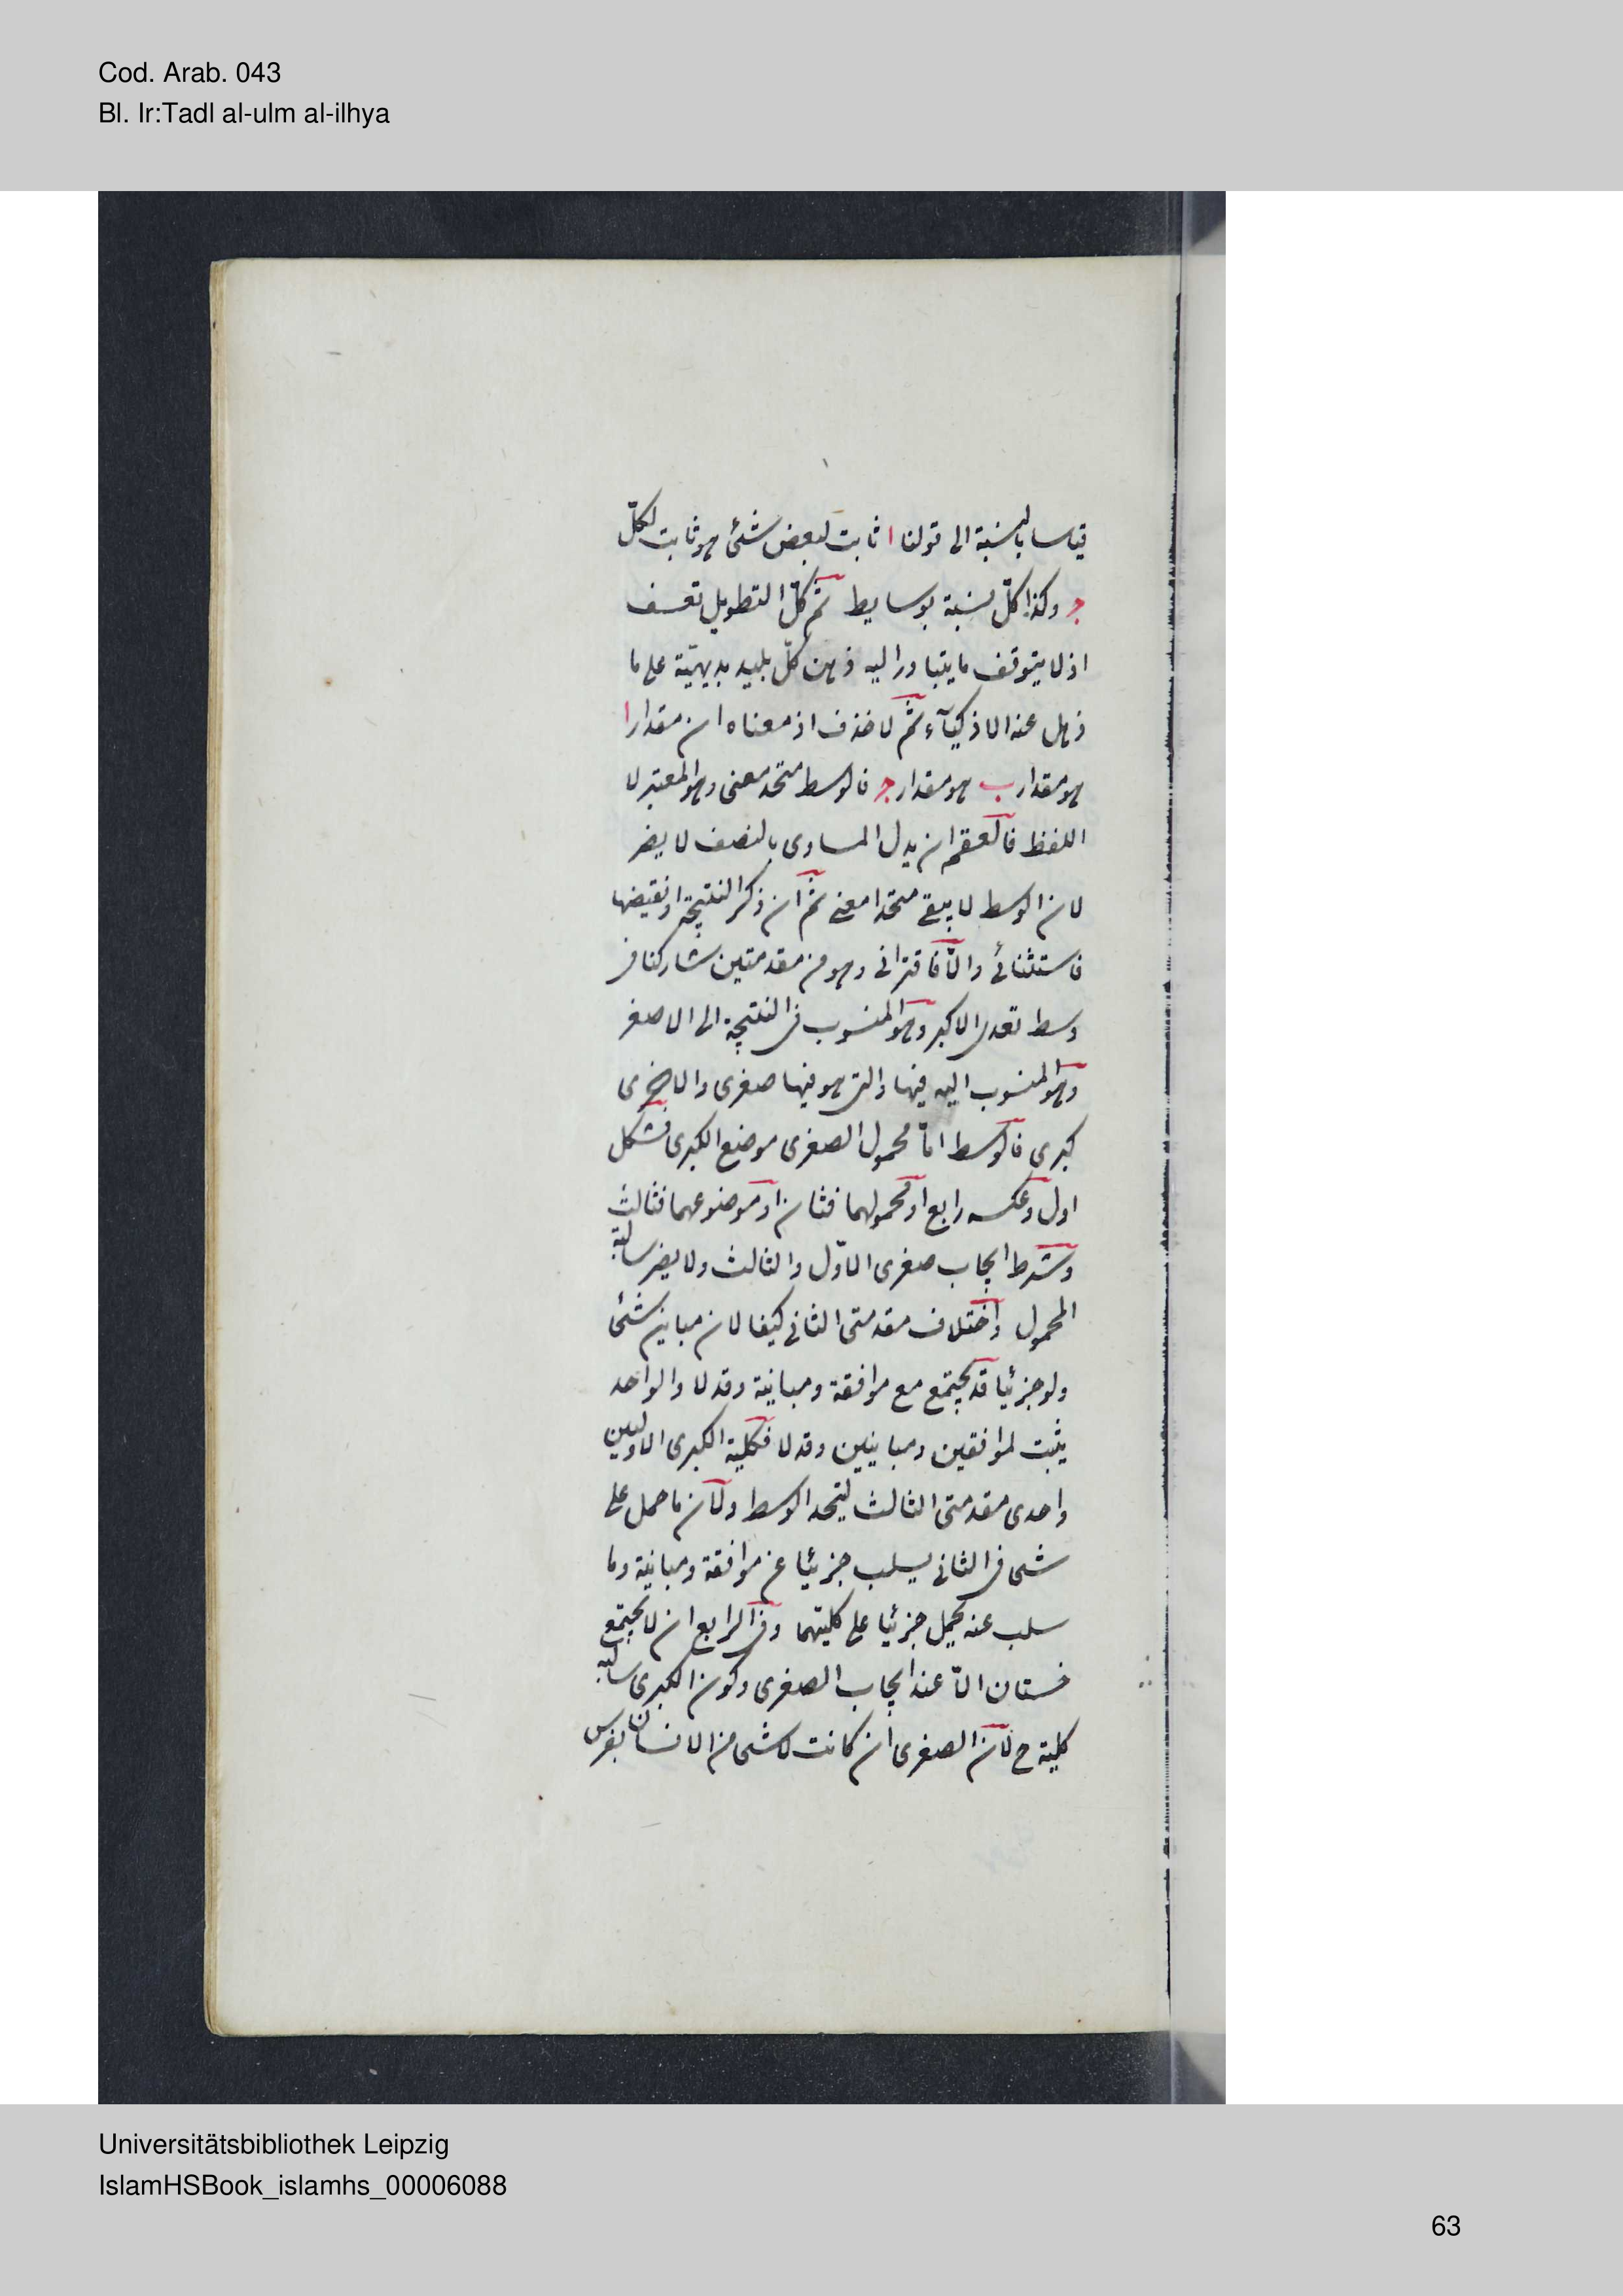 Cod. Arab. 043
Bl. Ir:Tadl al-ulm al-ilhya
قياسا بالنسبة الى قولنا ا ثابت لبعض شئ هو ثابت لكلّ
ج وكذا كلّ نسبة بوسايط ثم كلّ التطويل تعسف
اذ لا يتوقف ما يتبادر اليه ذهن كلّ بليد بديهيّة على ما
ذهل عنه الاذكيآء ثم لا حذف اذ معناه ان مقدار ا
هو مقدار ب هو مقدار ج فالوسط متحد معنى وهو المعتبر لا
اللفظ فالعقم ان بدل المساوى بالنصف لا يضر
لان الوسط لا يبقى متحدا معنى ثم ان ذكر النتيجة او نقيضها
فاستثنائى والّا فاقترانى وهو من مقدمتين شاركتا فى
وسط تعدى الاكبر وهو المنسوب فى النتيجة الى الاصغر
وهو المنسوب اليه فيها والتى هو فيها صغرى والاخرى
كبرى فالوسط امّا محمول الصغرى موضع الكبرى فشكل
اول وعكسه رابع او محمولهما فثان او موضوعهما فثالث
وشرط ايجاب صغرى الاوّل والثالث ولا يضر سالبة
المحمول واختلاف مقدمتى الثانى كيفا لان مباين شئ
ولو جزئيا قد يجتمع مع موافقة ومباينة وقد لا والواحد
يثبت لموافقين ومباينين وقد لا فكلية الكبرى الاوليين
واحدى مقدمتى الثالث ليتحد الوسط ولان ما حمل على
شى فى الثانى يسلب جزئيا عن موافقة ومباينة وما
سلب عنه يحمل جزئيا على كليتهما وفى الرابع ان لا يجتمع
خستان الّا عند ايجاب الصغرى وكون الكبرى سالبة
كلية ح لان الصغرى ان كانت لا شى من الانسان بفرس
Universitätsbibliothek Leipzig
IslamHSBook_islamhs_00006088
63